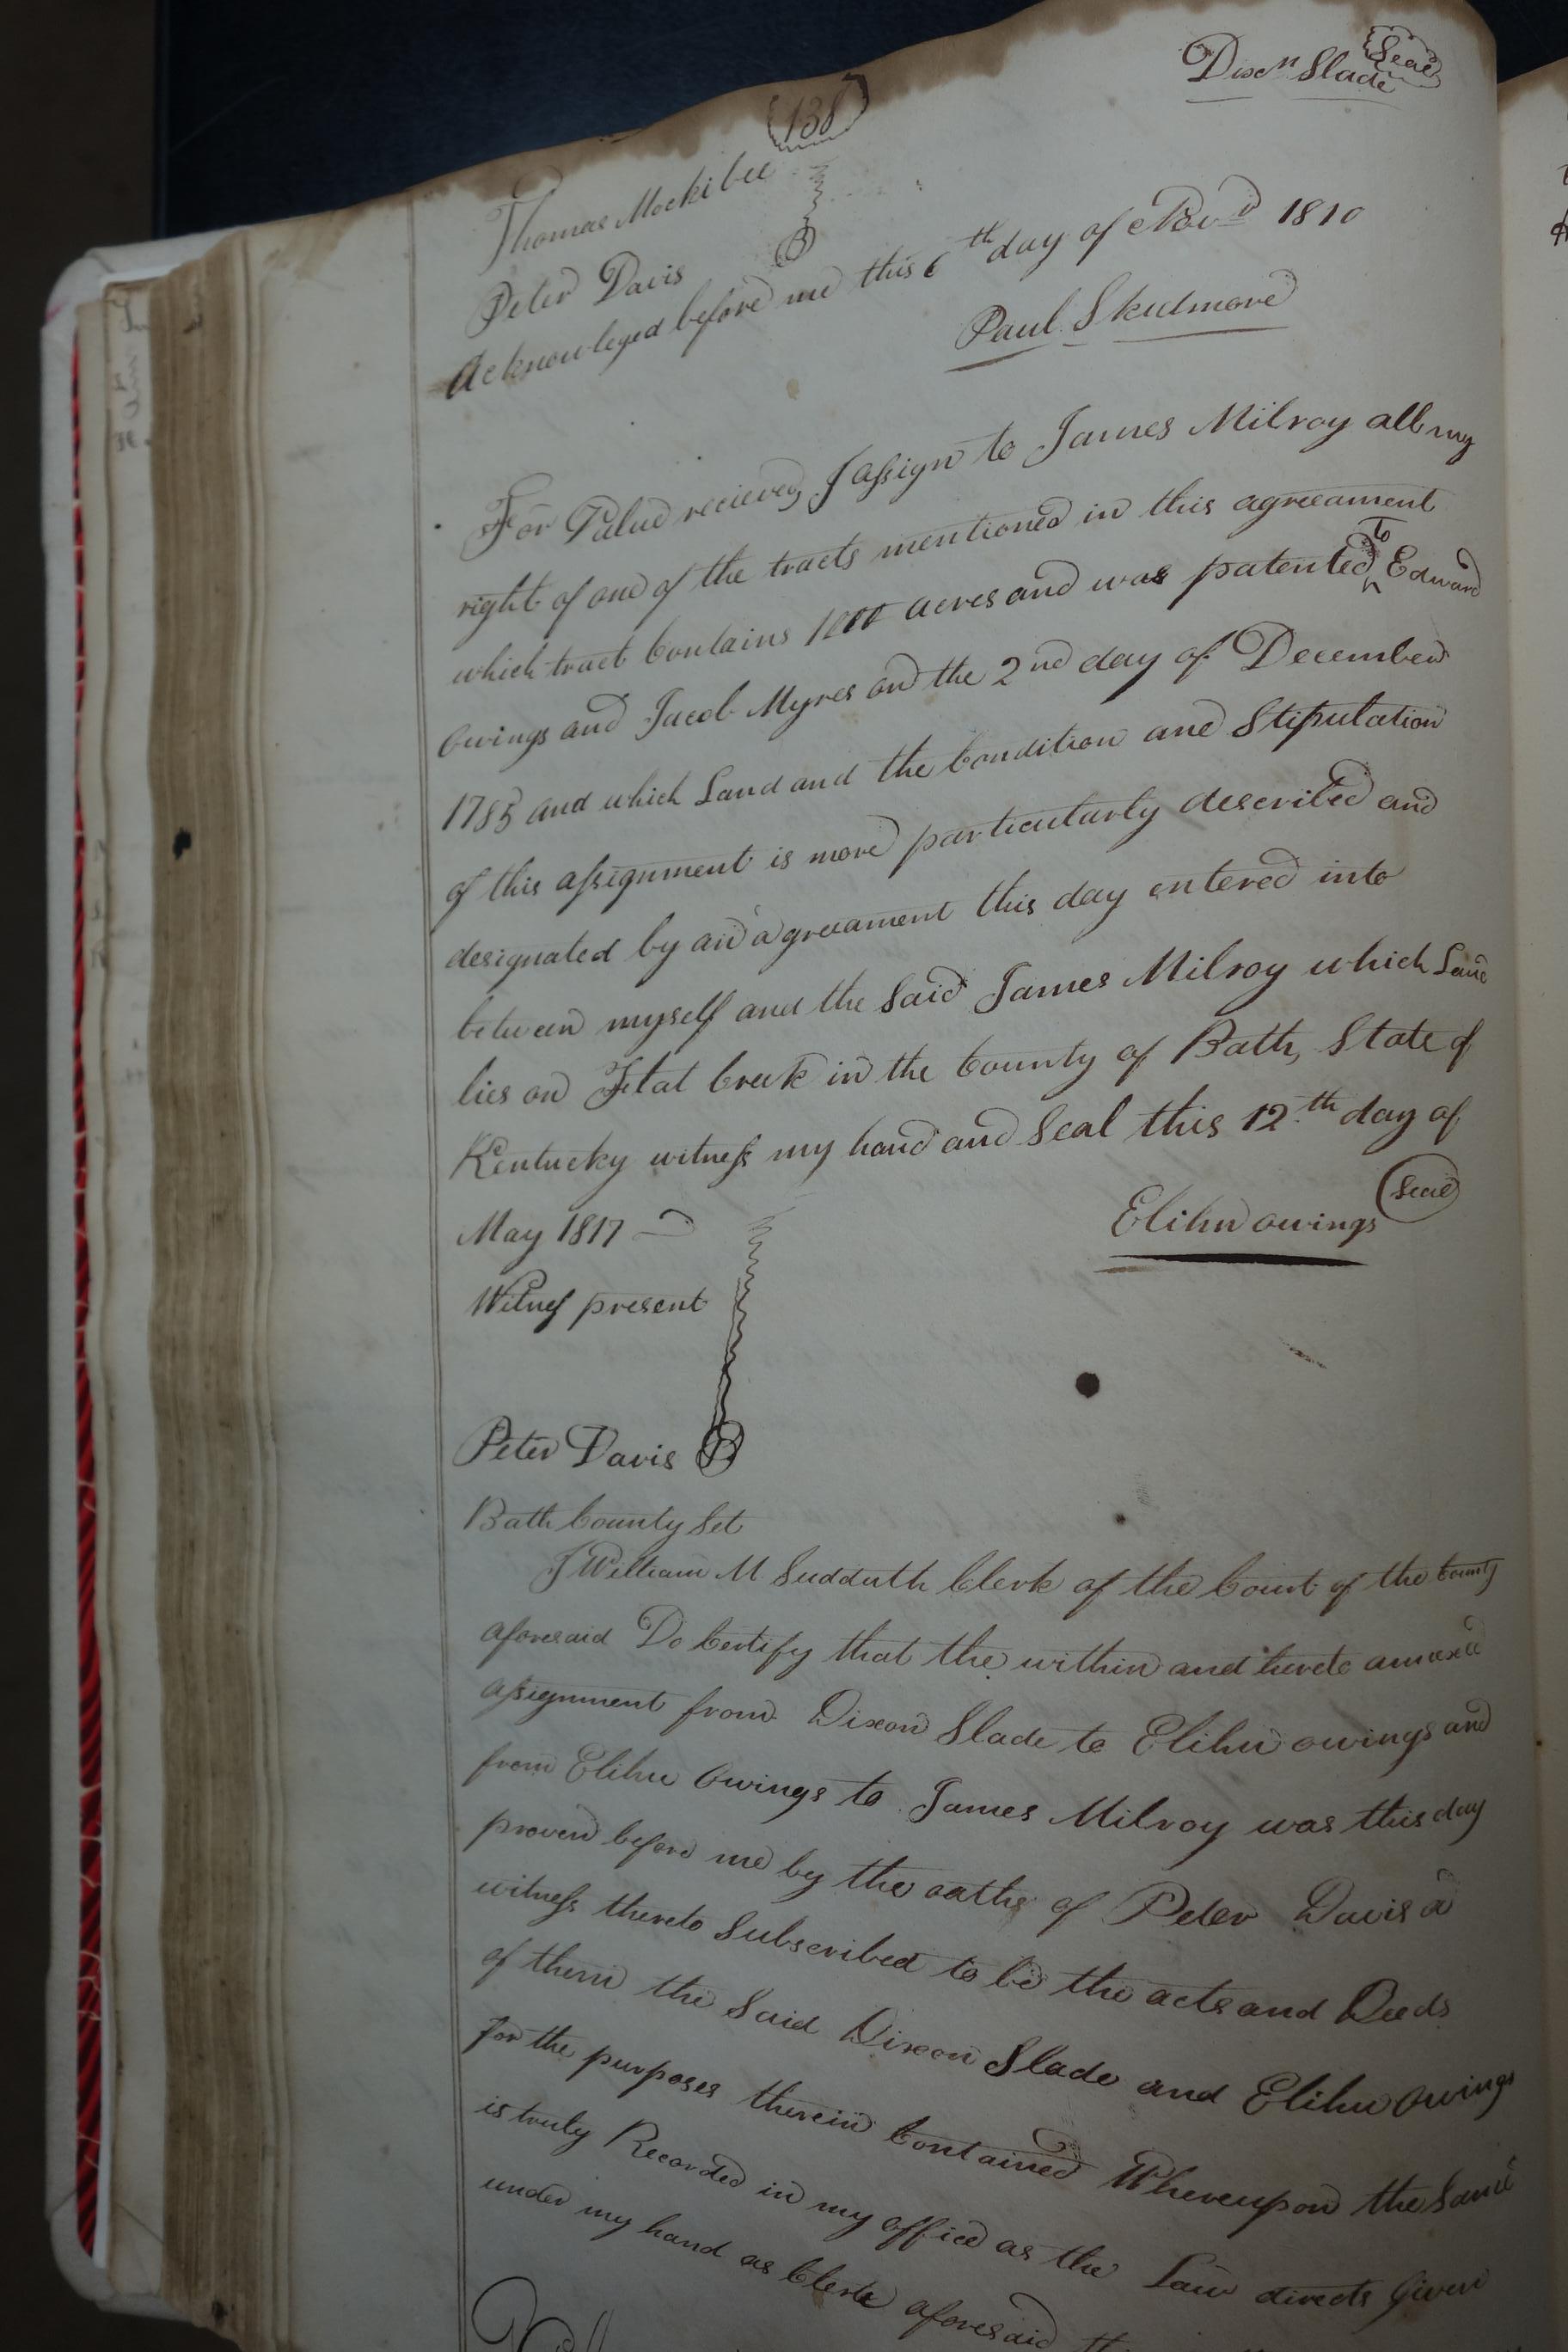 138
Dixn Slade Seal
Thomas Mockibee
Peter Davis
Acknowleged before me this 6th day of Novr 1810
Paul Skidmore
For Value recieved I assign to James Milroy all my
right of one of the tracts mentioned in this agreeament
which tract Contains 1000 acres and was patented to Edward
Owings and Jacob Myres on the 2nd day of December
1785 and which Land and the Condition and Stipulation
of this assignment is more particularly described and
designated by an agreeament this day entered into
between myself and the Said James Milroy which Land
lies on Flat Creek in the County of Bath, State of
Kentucky witness my hand and Seal this 12th day of
May 1817
Elihu owings Seal
Witness present
Peter Davis
Bath County Sct
I William M Sudduth Clerk of the Court of the County
aforesaid Do Certify that the within and hereto annexed
assignment from Dixon Slade to Elihu owings and
from Elihu Owings to James Milroy was this day
proven before me by the oaths of Peter Davis a
witness thereto Subscribed to be the acts and Deeds
of them the Said Dixon Slade and Elihu Owings
for the purposes therein Contained Whereupon the Same
is truly Recorded in my office as the Law directs Given
under my hand as Clerk aforesaid